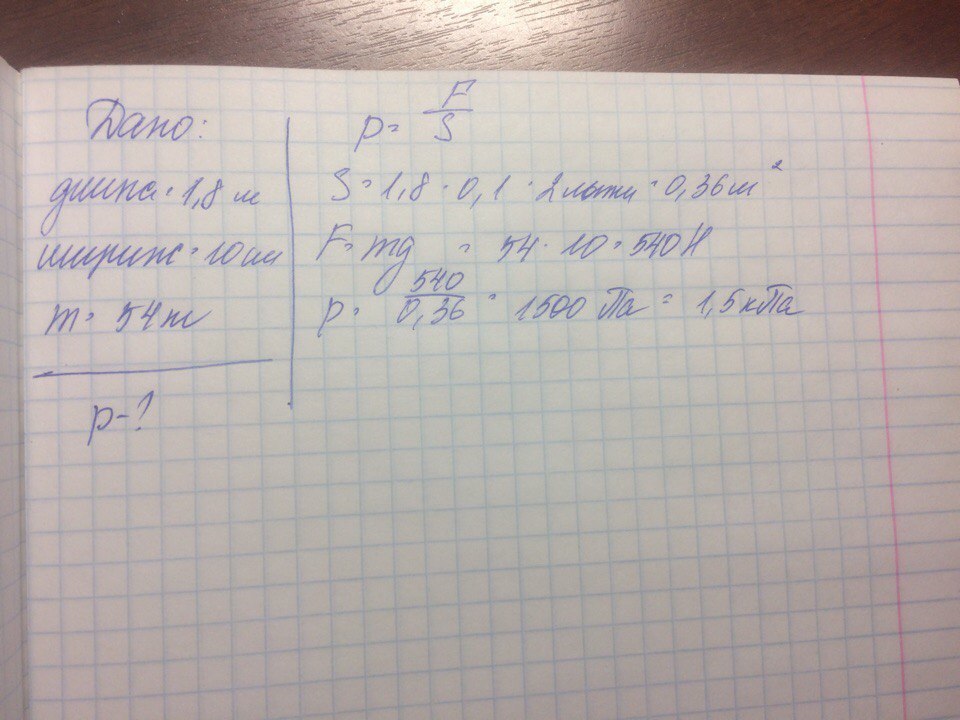 Дано:
длина = 1,8 м
ширина = 10 см
m = 54 кг
p - ?
p = F/S
S = 1,8 · 0,1 · 2 лыжи = 0,36 м²
F = mg = 54 · 10 = 540 Н
p = 540/0,36 = 1500 Па = 1,5 кПа